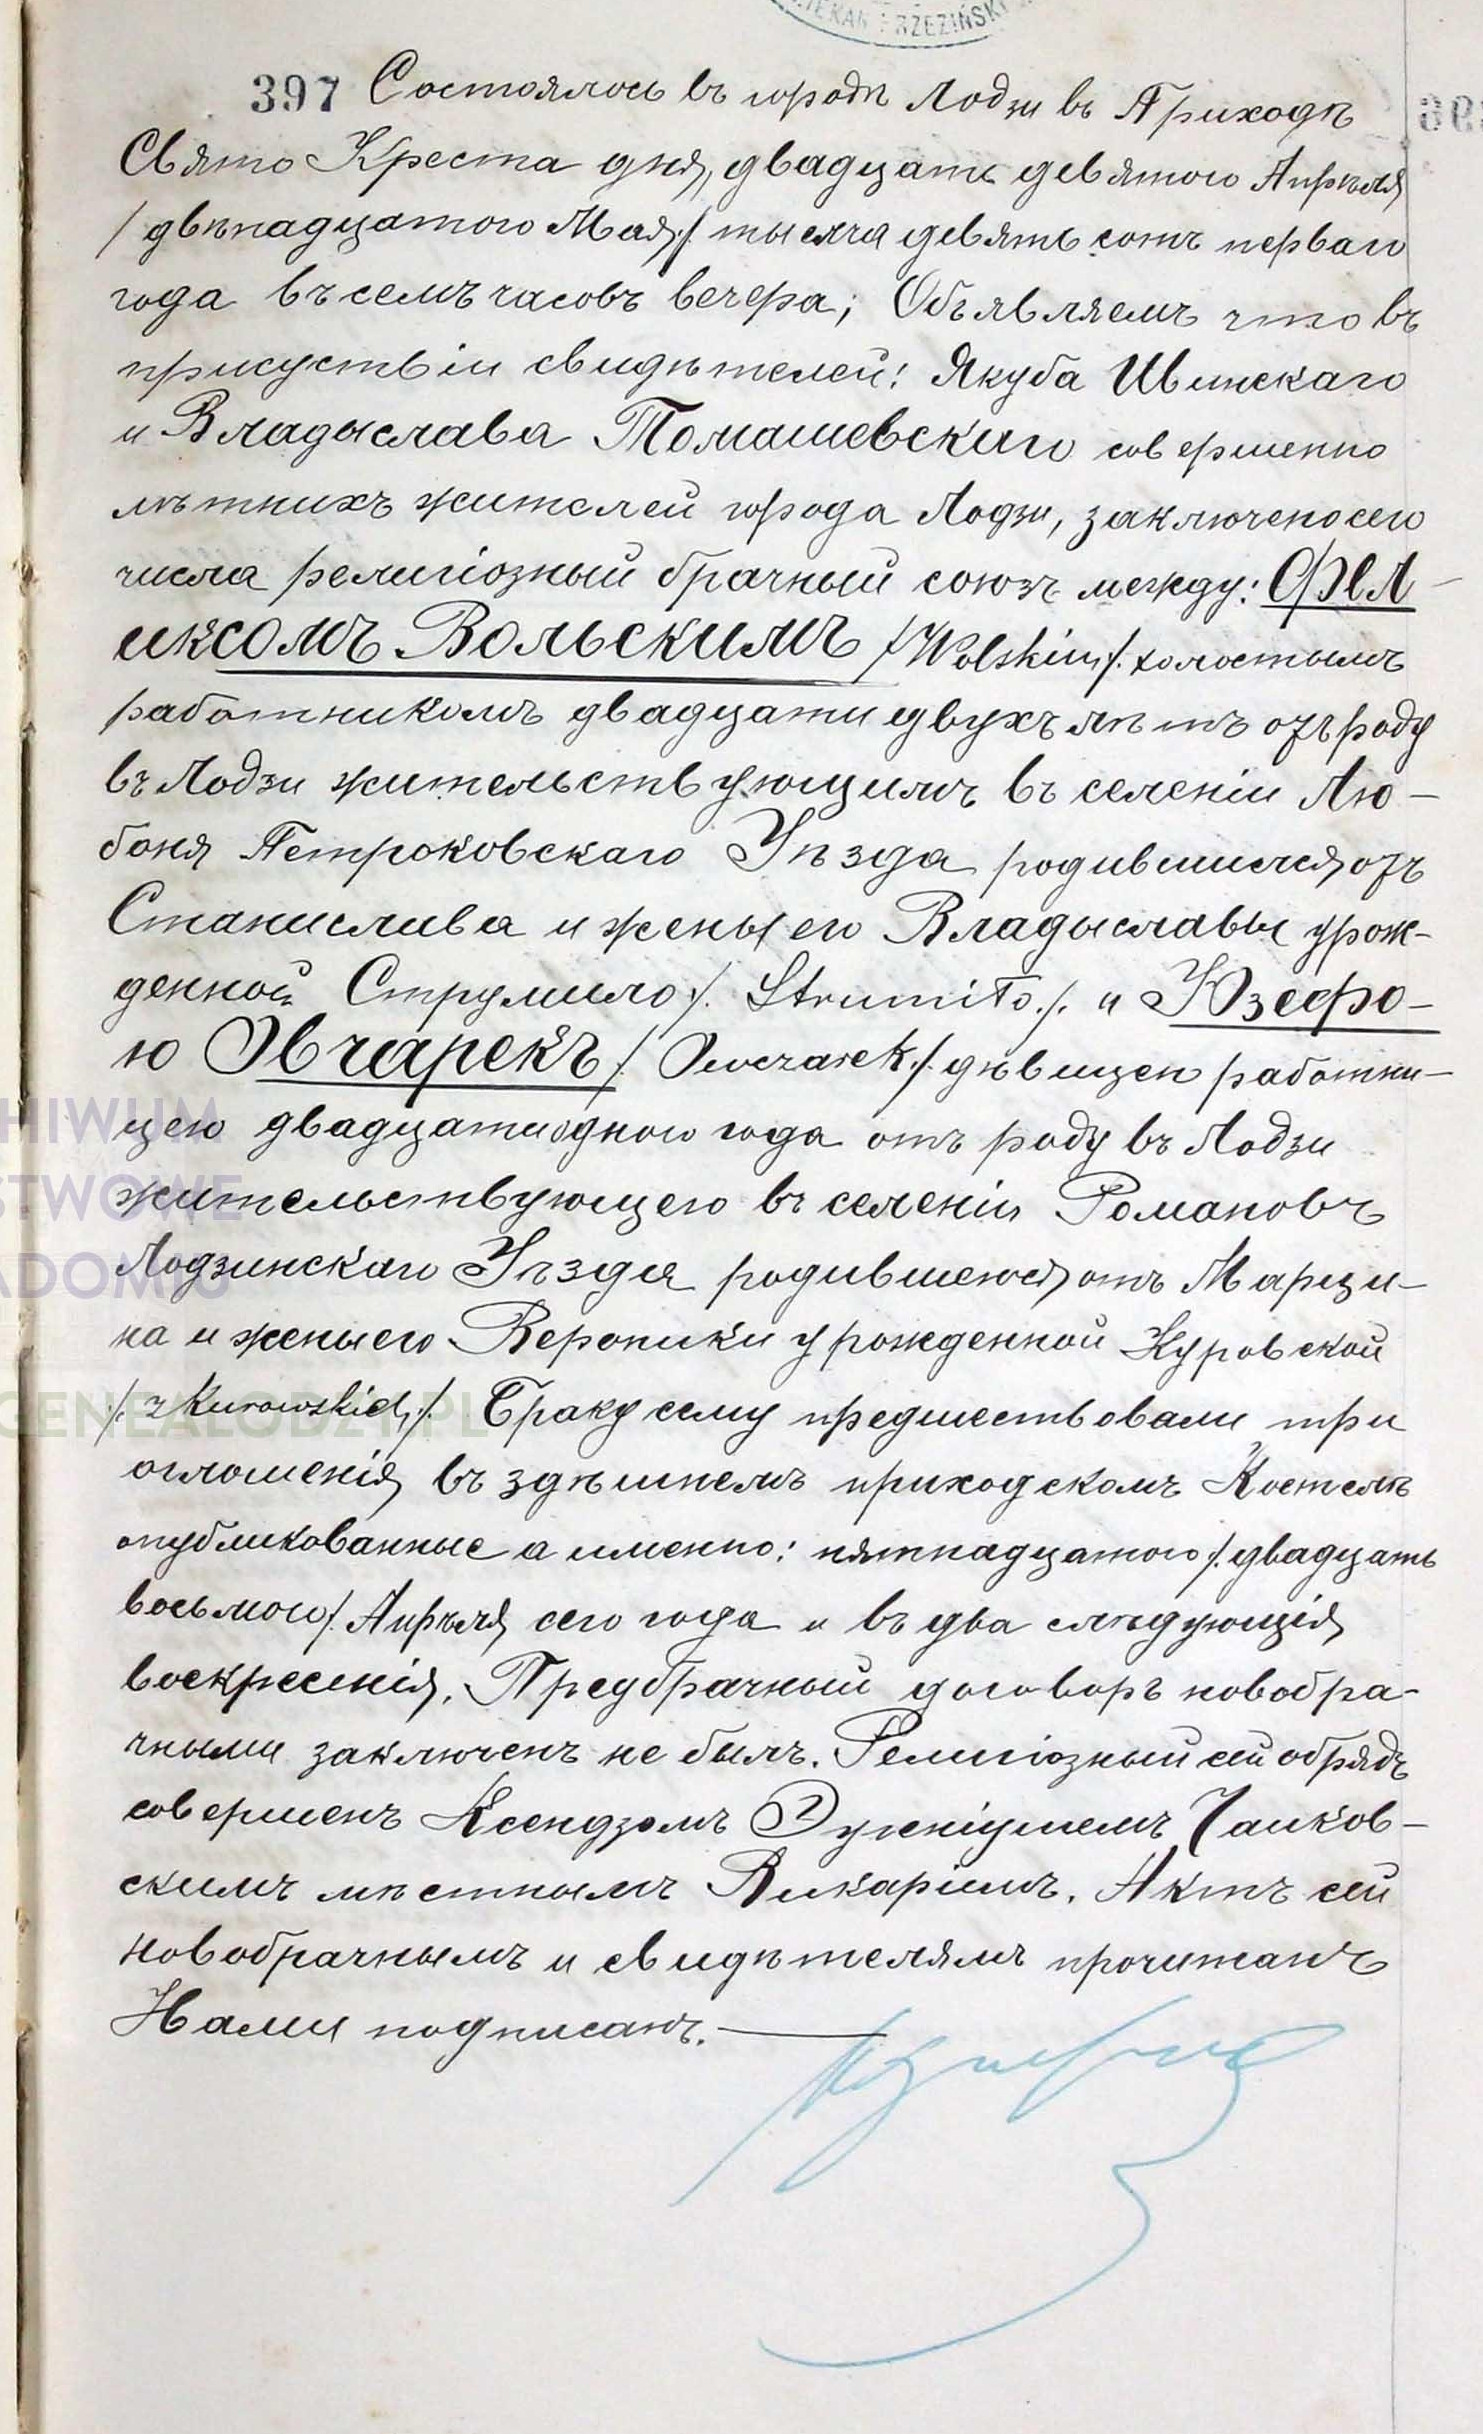 DZIEKAN BRZEZIŃSKI
397 Состоялось въ городѣ Лодзи въ Приходѣ
Свято Креста дня двадцать девятого Апрѣля
/ двѣнадцатого Мая / тысяча девять сотъ перваго
года въ семъ часовъ вечера; Объявляемъ что въ
присуствіи свидѣтелей: Якуба Ивинскаго
и Владыслава Томашевскаго совершенно
лѣтнихъ жителей города Лодзи, заключено сего
числа религіозный брачный союзъ между: ФЕЛ-
иксомъ Вольскимъ / Wolskim /. холостымъ
работникомъ двадцати двухъ лѣтъ отъ роду
въ Лодзи жительствующимъ въ селеніи Лю-
боня Петроковскаго Уѣзда родившимся отъ
Станислава и жены его Владыславы урож-
денной Струмило /. Strumiłło ./. и Юзефо-
ю Овчарекъ / Owczarek /. дѣвицею работни-
цею двадцати одного года отъ роду въ Лодзи
жительствующею въ селеніи Романовъ
Лодзинскаго Уѣзда родившеюся отъ Марци-
на и жены его Вероники урожденной Куровской
/. z Kurowskich /. Браку сему предшествовали три
оглошенія въ здѣшнемъ приходскомъ Костелѣ
опубликованные а именно: пятнадцатого /. двадцать
восьмого /. Апрѣля сего года и въ два слѣдующія
воскресенія. Предбрачный договоръ новобра-
чными заключенъ не былъ. Религіозный сей обрядъ
совершенъ Ксендзомъ Эугеніушемъ
скимъ мѣстнымъ Викаріимъ. Актъ сей
новобрачнымъ и свидѣтелямъ прочитанъ
Нами подписанъ.
ARCHIWUM
PAŃSTWOWE
GENEALODZY.PL